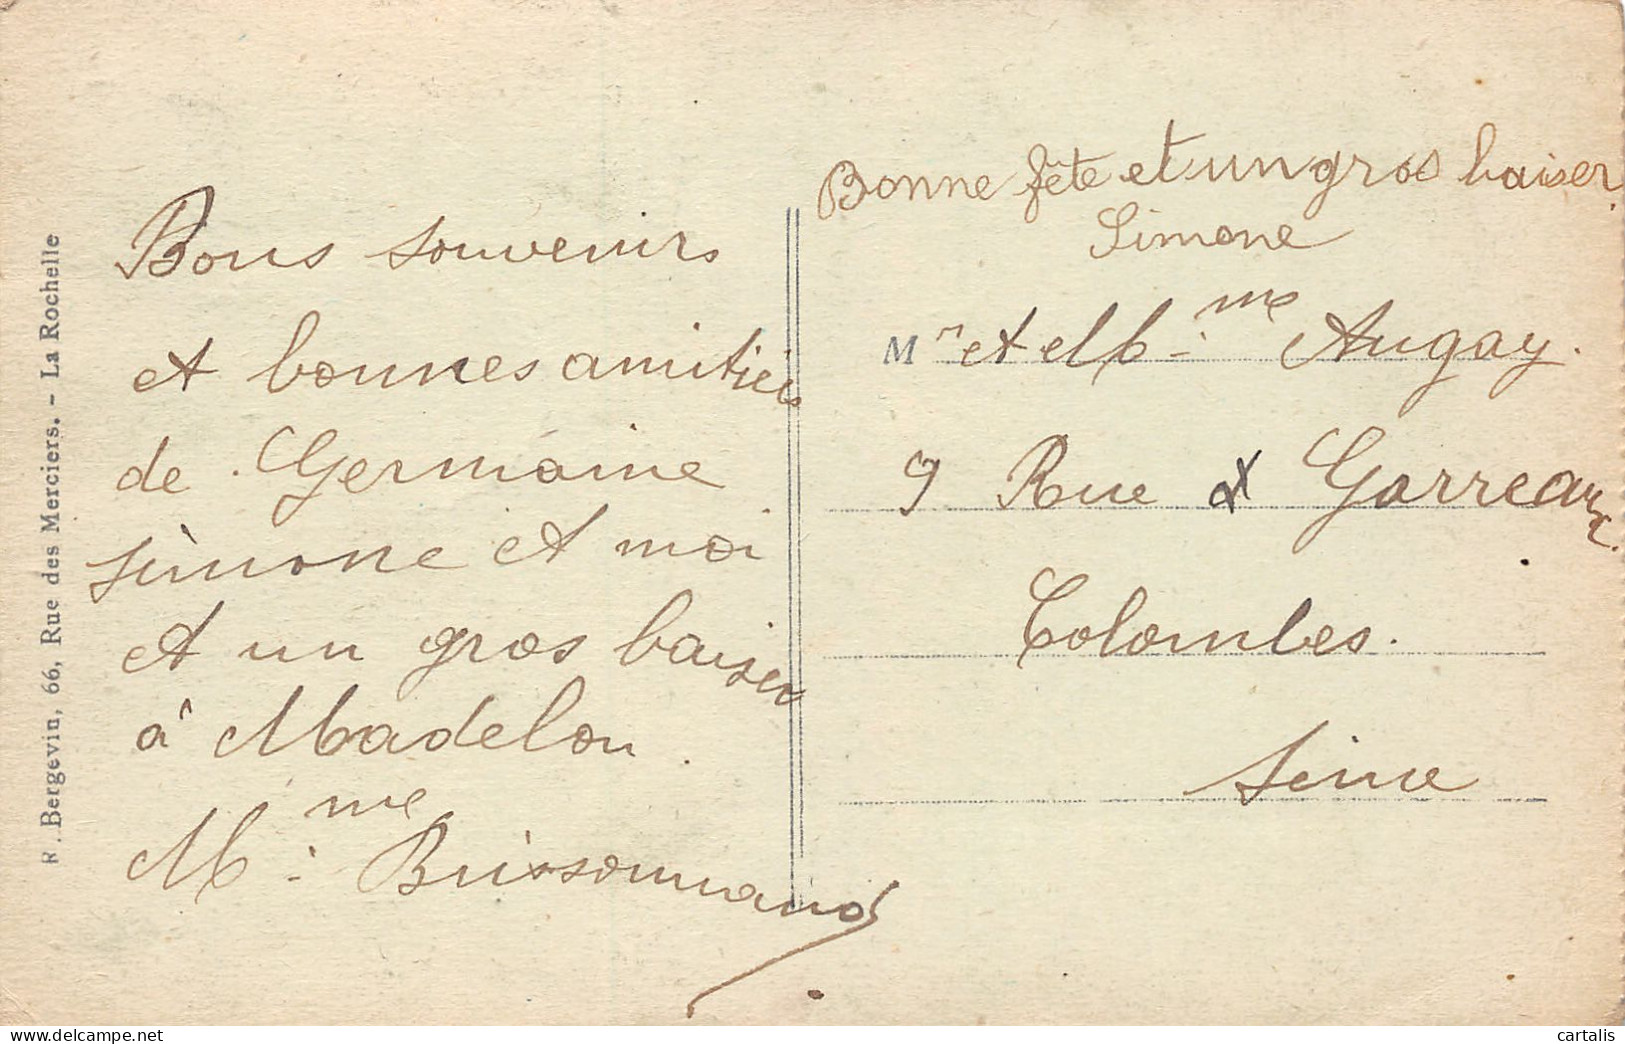 R. Bergevin, 66, Rue des Merciers. - La Rochelle
Bons souvenirs
et bonnes amitiés
de Germaine
simone et moi
et un gros baiser
à Madelon.
Mme Brissonnaud
Bonne fête et un gros baiser.
Simone
Mr et Mme Augay.
9 Rue Garreau
Colombes.
Seine
cartalis